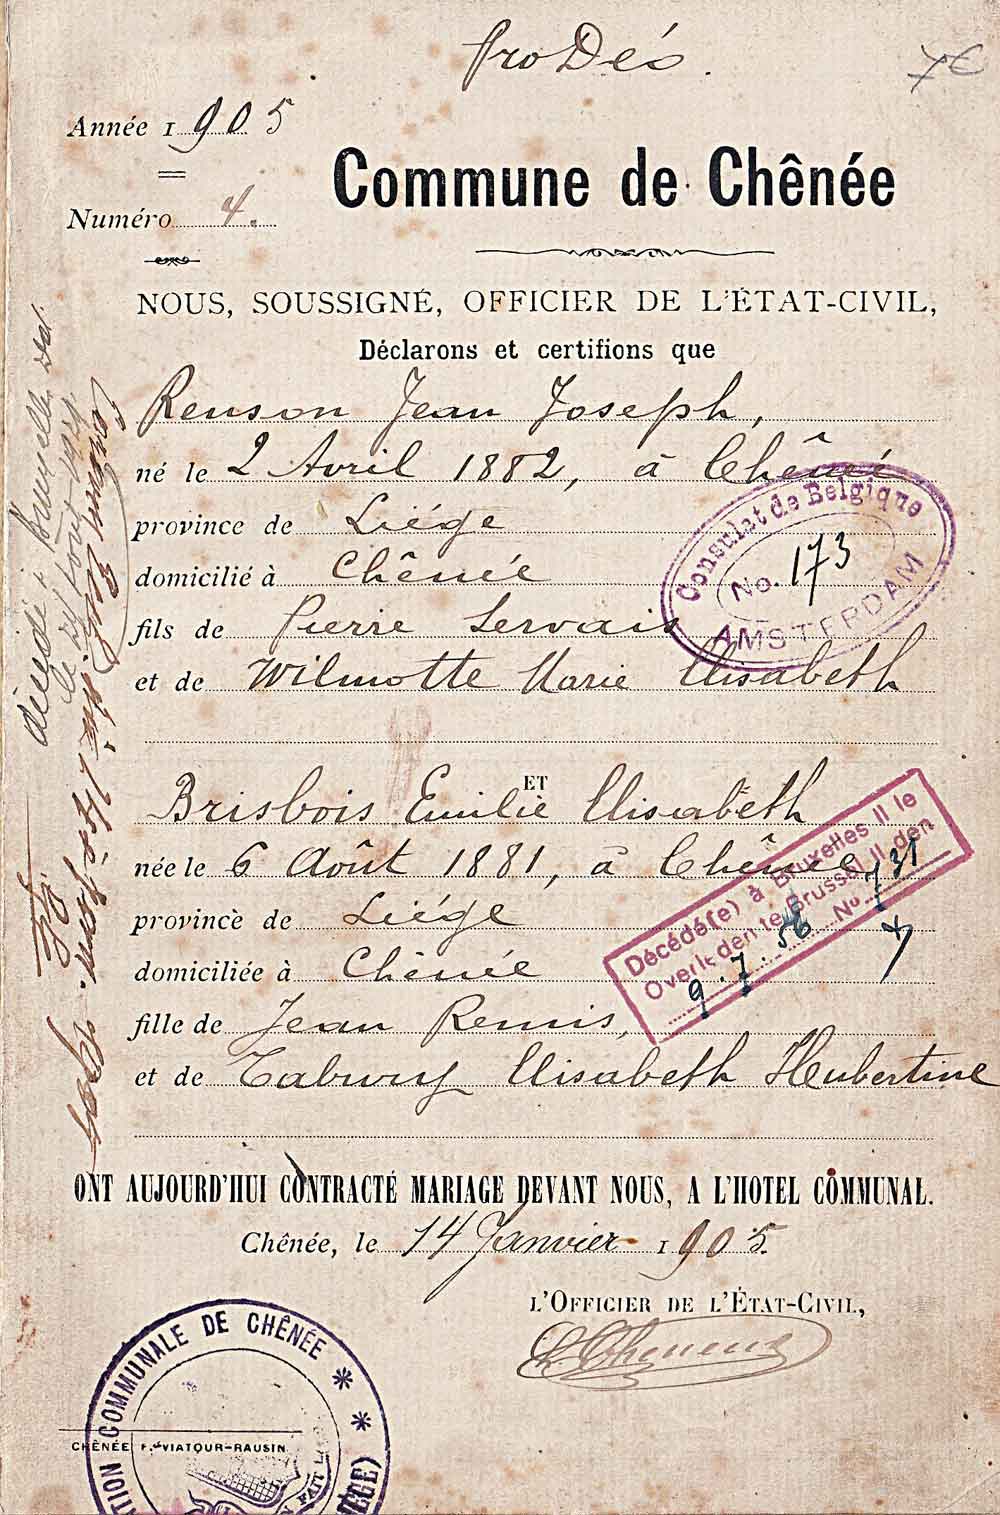 7€
Année 1905
Numéro 4.
Commune de Chênée
NOUS, SOUSSIGNÉ, OFFICIER DE L'ÉTAT-CIVIL,
Déclarons et certifions que
Renson Jean Joseph,
né le 2 Avril 1882, à Chênée
province de Liége
domicilié à Chênée
fils de Pierre Servais
et de Wilmotte Marie Elisabeth
Consulat de Belgique
No. 173
AMSTERDAM
ET
Brisbois Emilie Elisabeth
née le 6 Août 1881, à Chênée
province de Liége
domiciliée à Chênée
fille de Jean Remis,
et de Elisabeth Hubertine
Décédé(e) à Bruxelles II le
Overleden te Brussel II den
9.7.56 No 731
ONT AUJOURD'HUI CONTRACTÉ MARIAGE DEVANT NOUS, A L'HOTEL COMMUNAL.
Chênée, le 14 Janvier 1905.
L'OFFICIER DE L'ÉTAT-CIVIL,
COMMUNALE DE CHÊNÉE * *
CHÊNÉE F. VIATOUR-RAUSIN